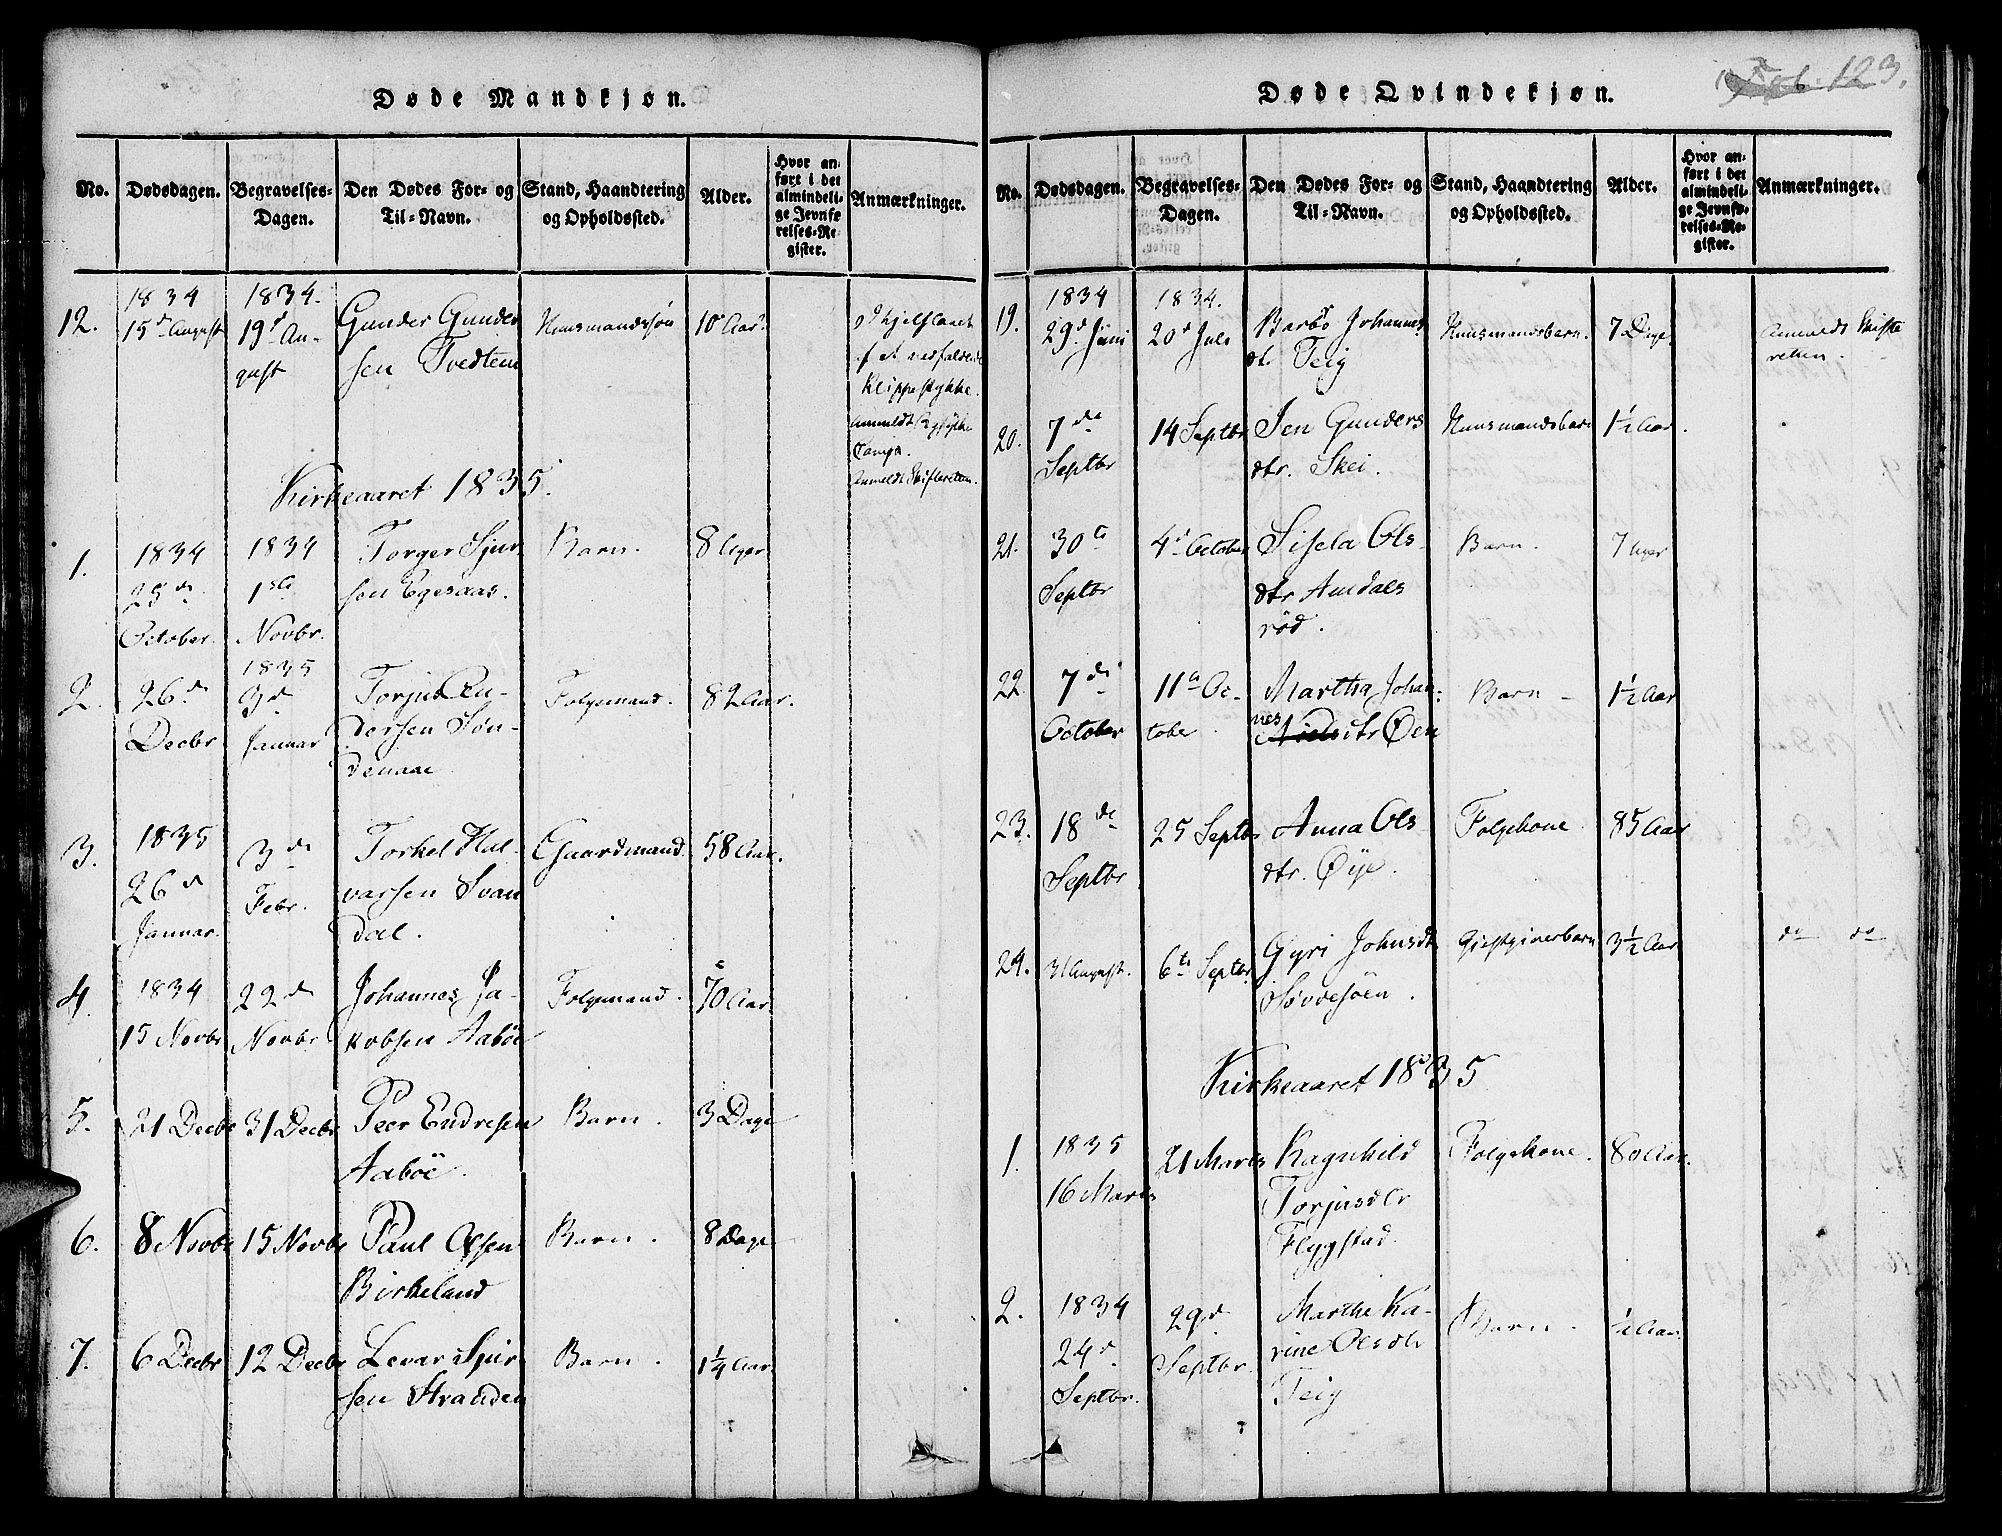 Døde Mandkjøn.
No.
Dødsdagen.
Begravelses-
Dagen.
Den Dødes For- og
Til-Navn.
Stand, Haandtering
og Opholdssted.
Alder.
Hvor an-
ført i det
almindeli-
ge Jevnfø
relses-Re-
gister.
Anmærkninger.
12.
1834
15d August
1834.
19d Au-
gust
Gunder Gunder
sen Tvedten
Huusmandssön
10 Aar
ihjelslaaet
af et nedfaldende
Klippestykke.
anmeldt
Anmeldt Skifteretten.
Kirkeaaret 1835.
1.
1834
25de
October.
1834
1ste
Novbr.
Torger Sjur-
sen Egesaas.
Barn.
8 Uger
2.
26de
Decbr
1835
3d
Januar
Torjus An-
dersen Søn-
denaae
Folgemand.
82 Aar.
3.
1835
26d
Januar.
3de
Febr.
Torkel Hal-
varsen Svan
dal.
Gaardmand
58 Aar.
4.
1834
15 Novbr
22de
Novbr
Johannes Ja-
kobsen Aaböe
Folgemand.
70 Aar.
5.
21 Decbr
31 Decbr
Peer Endresen
Aaböe.
Barn.
3 Dage
6.
8 Novbr
15 Novbr
Paul Olsen
Birkeland
Barn.
8 Dage
7.
6 Decbr
12 Decbr
Levar Sjur
sen Stranden
Barn.
1¼ Aar.
Døde Qvindekjøn.
123.
No.
Dødsdagen.
Begravelses-
Dagen.
Den Dødes For- og
Til-Navn.
Stand, Haandtering
og Opholdssted.
Alder.
Hvor an-
ført i det
almindeli-
ge Jevnfø-
relses-Re-
gister.
Anmærkninger.
19.
1834
29d Juni
1834.
20d Juli
Barbö Johannes
dt. Teig
Huusmandsbarn.
7 Dage
Anmeldt Skifte
retten.
20.
7de
Septbr
14 Septbr
Sen Gunders
dtr. Skei.
Huusmandsbarn
1½ Aar.
21.
30te
Septbr
4d October
Sisela Ols-
dtr Amdals
röd.
Barn.
7 Uger
22.
7de
October
11te Oc-
tober
Martha Johan-
nes
Niels dtr Øen
Barn
1½ Aar
23.
18de
Septbr
25 Septbr
Anna Ols-
dtr. Øye.
Folgekone.
85 Aar
24.
31 August.
6te Septbr
Gyri Johnsdt
Søvdesöen.
Gjestgiverbarn
3½ Aar
do do
Kirkeaaret 1835
1.
1835
16 Marts
21 Marts
Ragnhild
Torjusdtr
Flygstad.
Folgekone.
80 Aar.
2.
1834
24d
Septbr.
29de
Septbr.
Marthe Ka-
rine Olsdtr
Teig
Barn.
½ Aar.